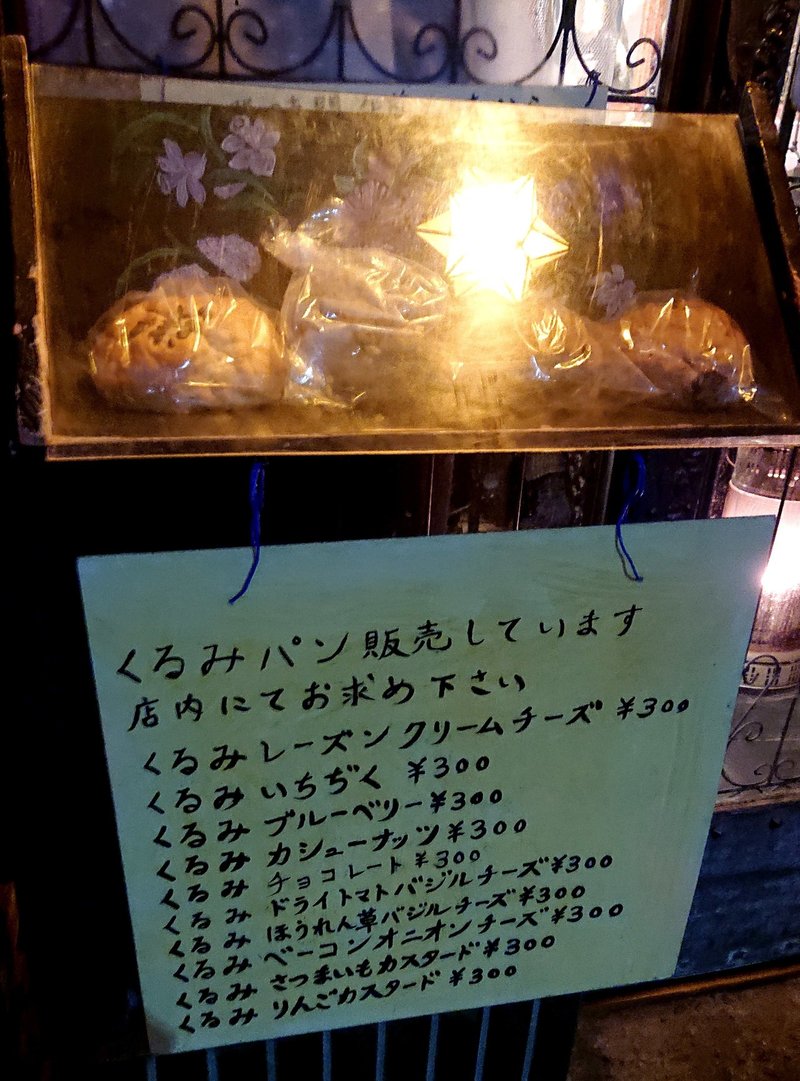 くるみパン販売しています
店内にてお求め下さい
くるみ レーズンクリームチーズ ¥300
くるみ いちぢく ¥300
くるみ ブルーベリー ¥300
くるみ カシューナッツ ¥300
くるみ チョコレート ¥300
くるみ ドライトマトバジルチーズ ¥300
くるみ ほうれん草バジルチーズ ¥300
くるみ ベーコンオニオンチーズ ¥300
くるみ さつまいもカスタード ¥300
くるみ りんごカスタード ¥300